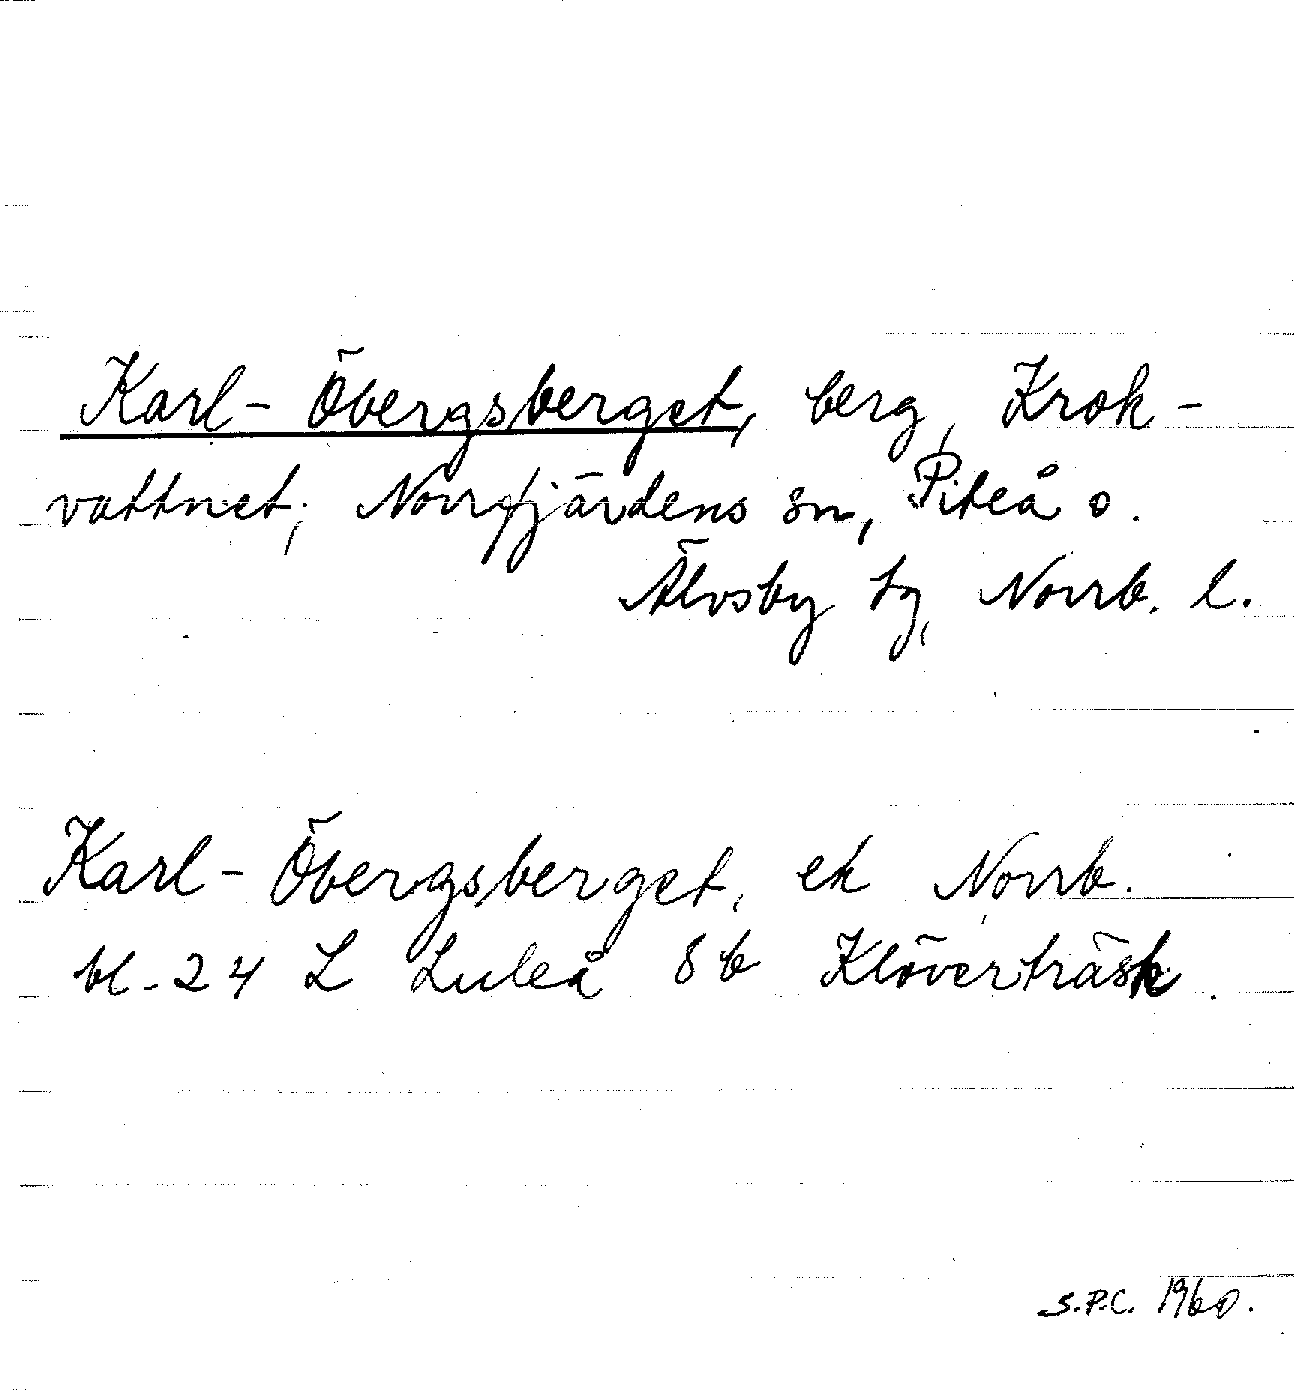 Karl-Öbergsberget, berg, Krok-
vattnet, Norrfjärdens sn, Piteå o.
Älvsby tg, Norrb. l.
Karl-Öbergsberget, ek Norrb.
bl. 24 L Luleå 8b Klöverträsk.
S.P.C. 1960.